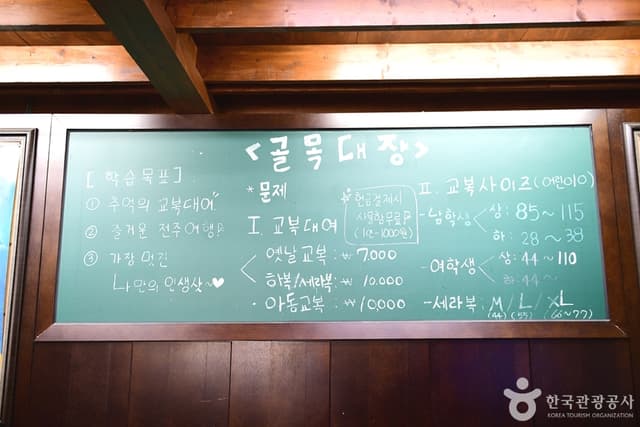 <골목대장>
[학습목표]
① 추억의 교복대여
② 즐거운 전주여행
③ 가장 멋진
나만의 인생샷~♥
*문제
현금결제시
사물함무료
(1인-1000원)
I. 교복대여
옛날교복: ₩ 7,000
하복/세라복: ₩ 10,000
·아동교복: ₩ 10,000
II. 교복사이즈(어린이O)
-남학생 < 상: 85~115
하: 28~38
-여학생 < 상: 44~110
하: 44~
-세라복 M / L / XL
(44) (55) (66~77)
한국관광공사
KOREA TOURISM ORGANIZATION